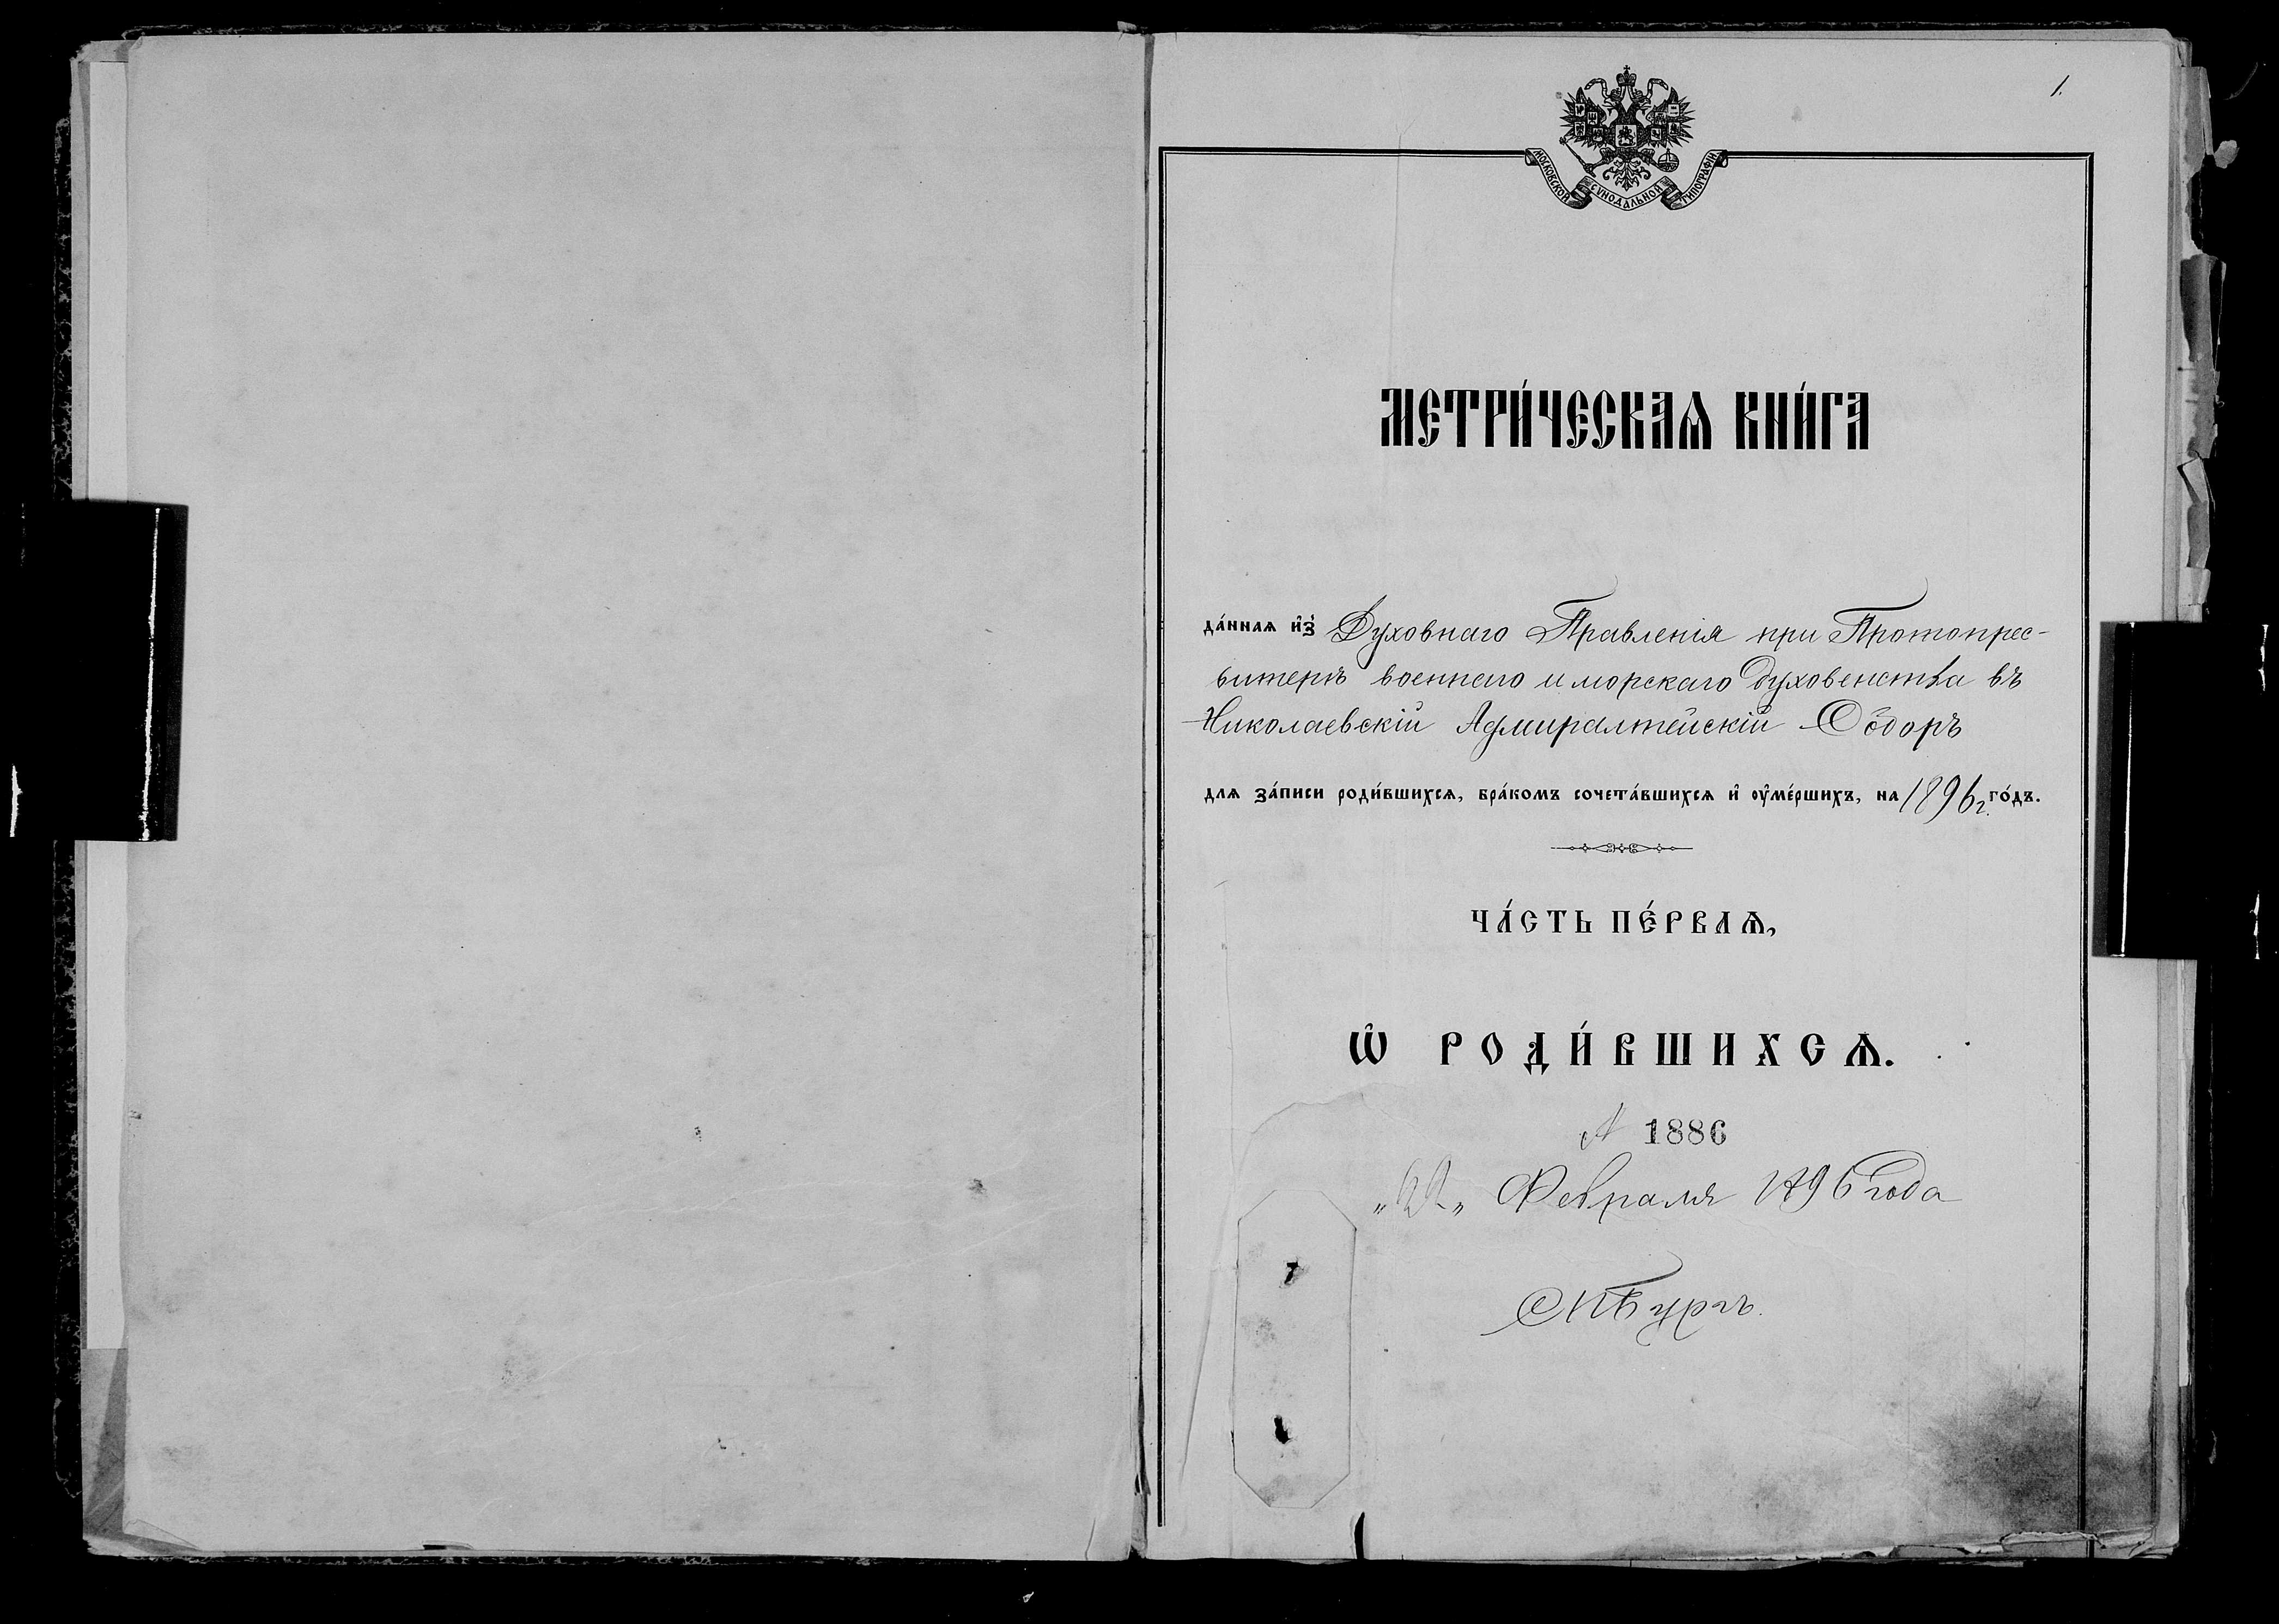 1.
МОСКОВСКОЙ СѴНОДАЛЬНОЙ ТИПОГРАФІИ
МЕТРИ́ЧЕСКАѦ КНИ́ГА
да́ннаѧ и҆з̾ Духовнаго Правленія при Протопрес-
витерѣ военнаго и морскаго духовенства въ
Николаевскій Адмиралтейскій Соборъ
длѧ за́писи роди́вшихсѧ, бра́комъ сочета́вшихсѧ и҆ оу҆ме́ршихъ, на 1896 г. го́дъ.
ЧА́СТЬ ПЕ́РВАѦ,
Ѽ РОДИ́ВШИХСѦ.
№ 1886
„ 22 „ Февраля 1896 года
СПБургъ.